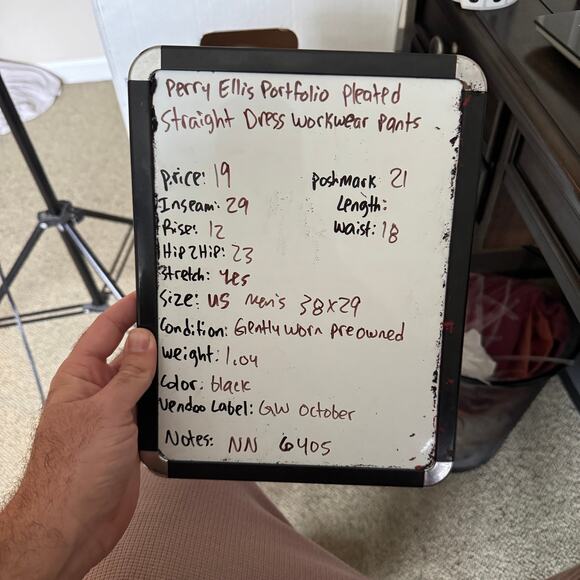 Perry Ellis Portfolio Pleated
Straight Dress Workwear Pants
Price: 19 Poshmark 21
Inseam: 29 Length:
Rise: 12 Waist: 18
Hip2Hip: 23
Stretch: Yes
Size: US Men's 38x29
Condition: Gently Worn Preowned
Weight: 1.04
Color: black
Vendoo Label: GW October
Notes: NN 6405